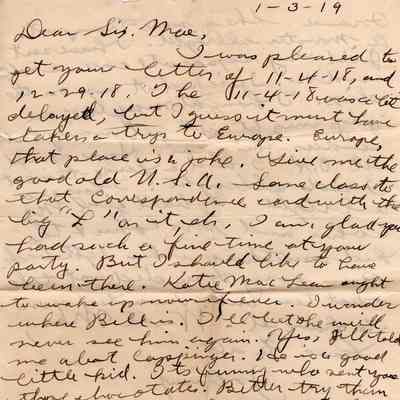 1-3-19
Dear Sis. Mae,
I was pleased to
get your letter of 11-4-18, and
12-29-18. The 11-4-18 was a bit
delayed, but I guess it must have
taken a trip to Europe. Europe,
that place is a joke. Give me the
good old U.S.A. Some class to
that Correspondence card with the
big "L" on it eh, I am glad you
had such a fine time at your
party. But I should like to have
been there. Katie Mac Lean ought
to wake up now if ever. I wonder
where Bill is. I'll bet she will
never see him again. Yes, Jill told
me about. He is a good
little kid. Its funny who sent you
those chocolates. Better try them